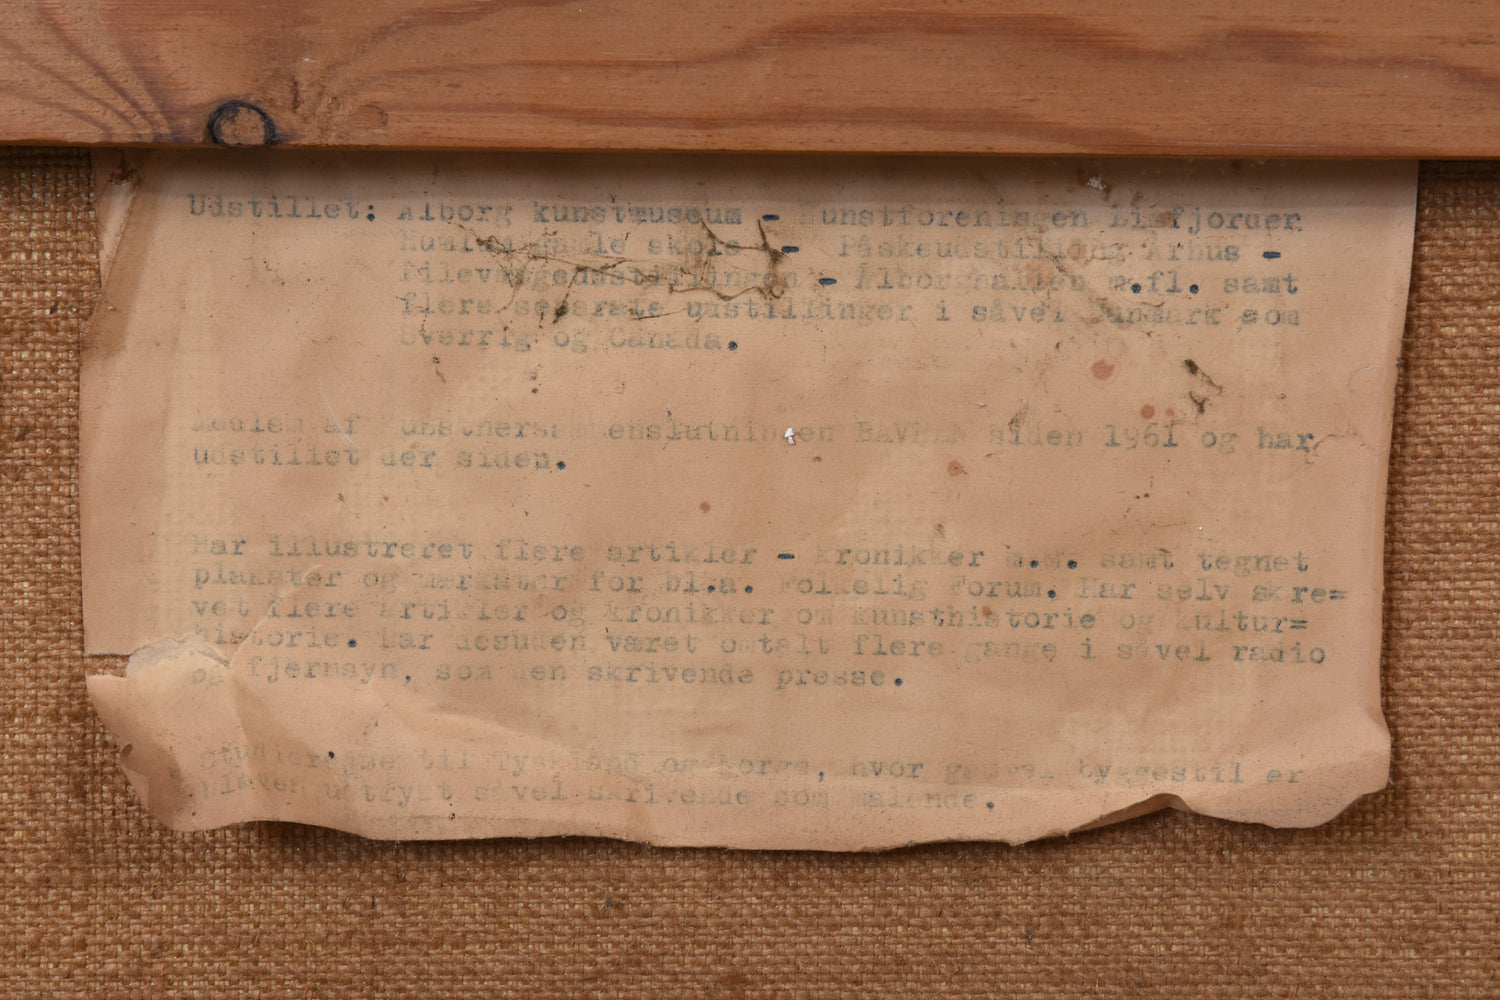 Udstillet: Ålborg kunstmuseum - Kunstforeningen Limfjorden
Humlum gamle skole - Påskeudstilling Århus -
Pilevangeudstillingen - Ålborghallen m.fl. samt
flere separate udstillinger i såvel Danmark som
Sverrig og Canada.
Medlem af Kunstnersammenslutningen siden 1961 og har
udstillet dér siden.
Har illustreret flere artikler - kronikker m.m. samt tegnet
plakater og mærkater for bl.a. Folkelig Forum. Har selv skre=
vet flere artikler og kronikker om kunsthistorie og kultur=
historie. Har desuden været omtalt flere gange i såvel radio
og fjernsyn, som den skrivende presse.
til Tyskland og Norge, hvor gammel byggestil er
blevet udtrykt såvel skrivende som malende.